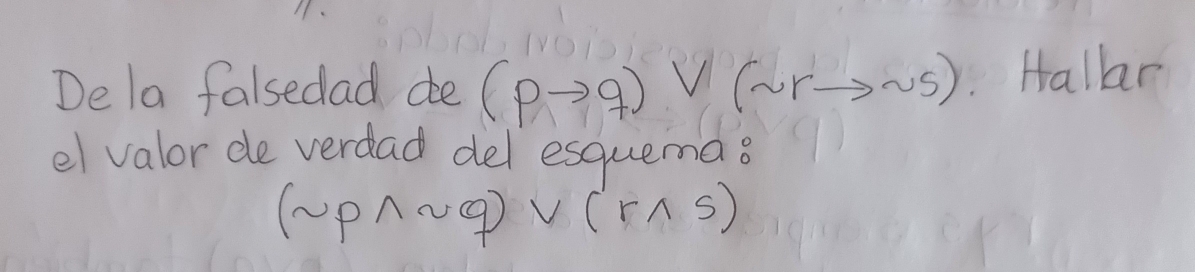 De la falsedad de (p→q) V (~r→~s). Hallar
el valor de verdad del esquema:
(~p∧~q) ∨ (r∧s)